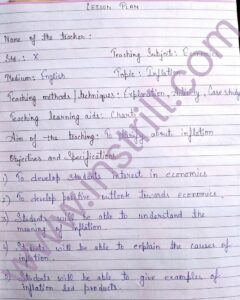 LESSON PLAN
Name of the teacher:
Std.: X Teaching Subject: Economics
Medium: English Topic: Inflation
Teaching methods/techniques: Exploration, Activity, Case study
Teaching learning aids: Charts
Aim of the teaching: To about inflation
Objectives and Specifications
1) To develop students interest in economics
2) To develop positive outlook towards economics.
3) Students will be able to understand the
meaning of inflation.
4) Students will be able to explain the causes of
inflation.
5) Students will be able to give examples of
inflation led products.